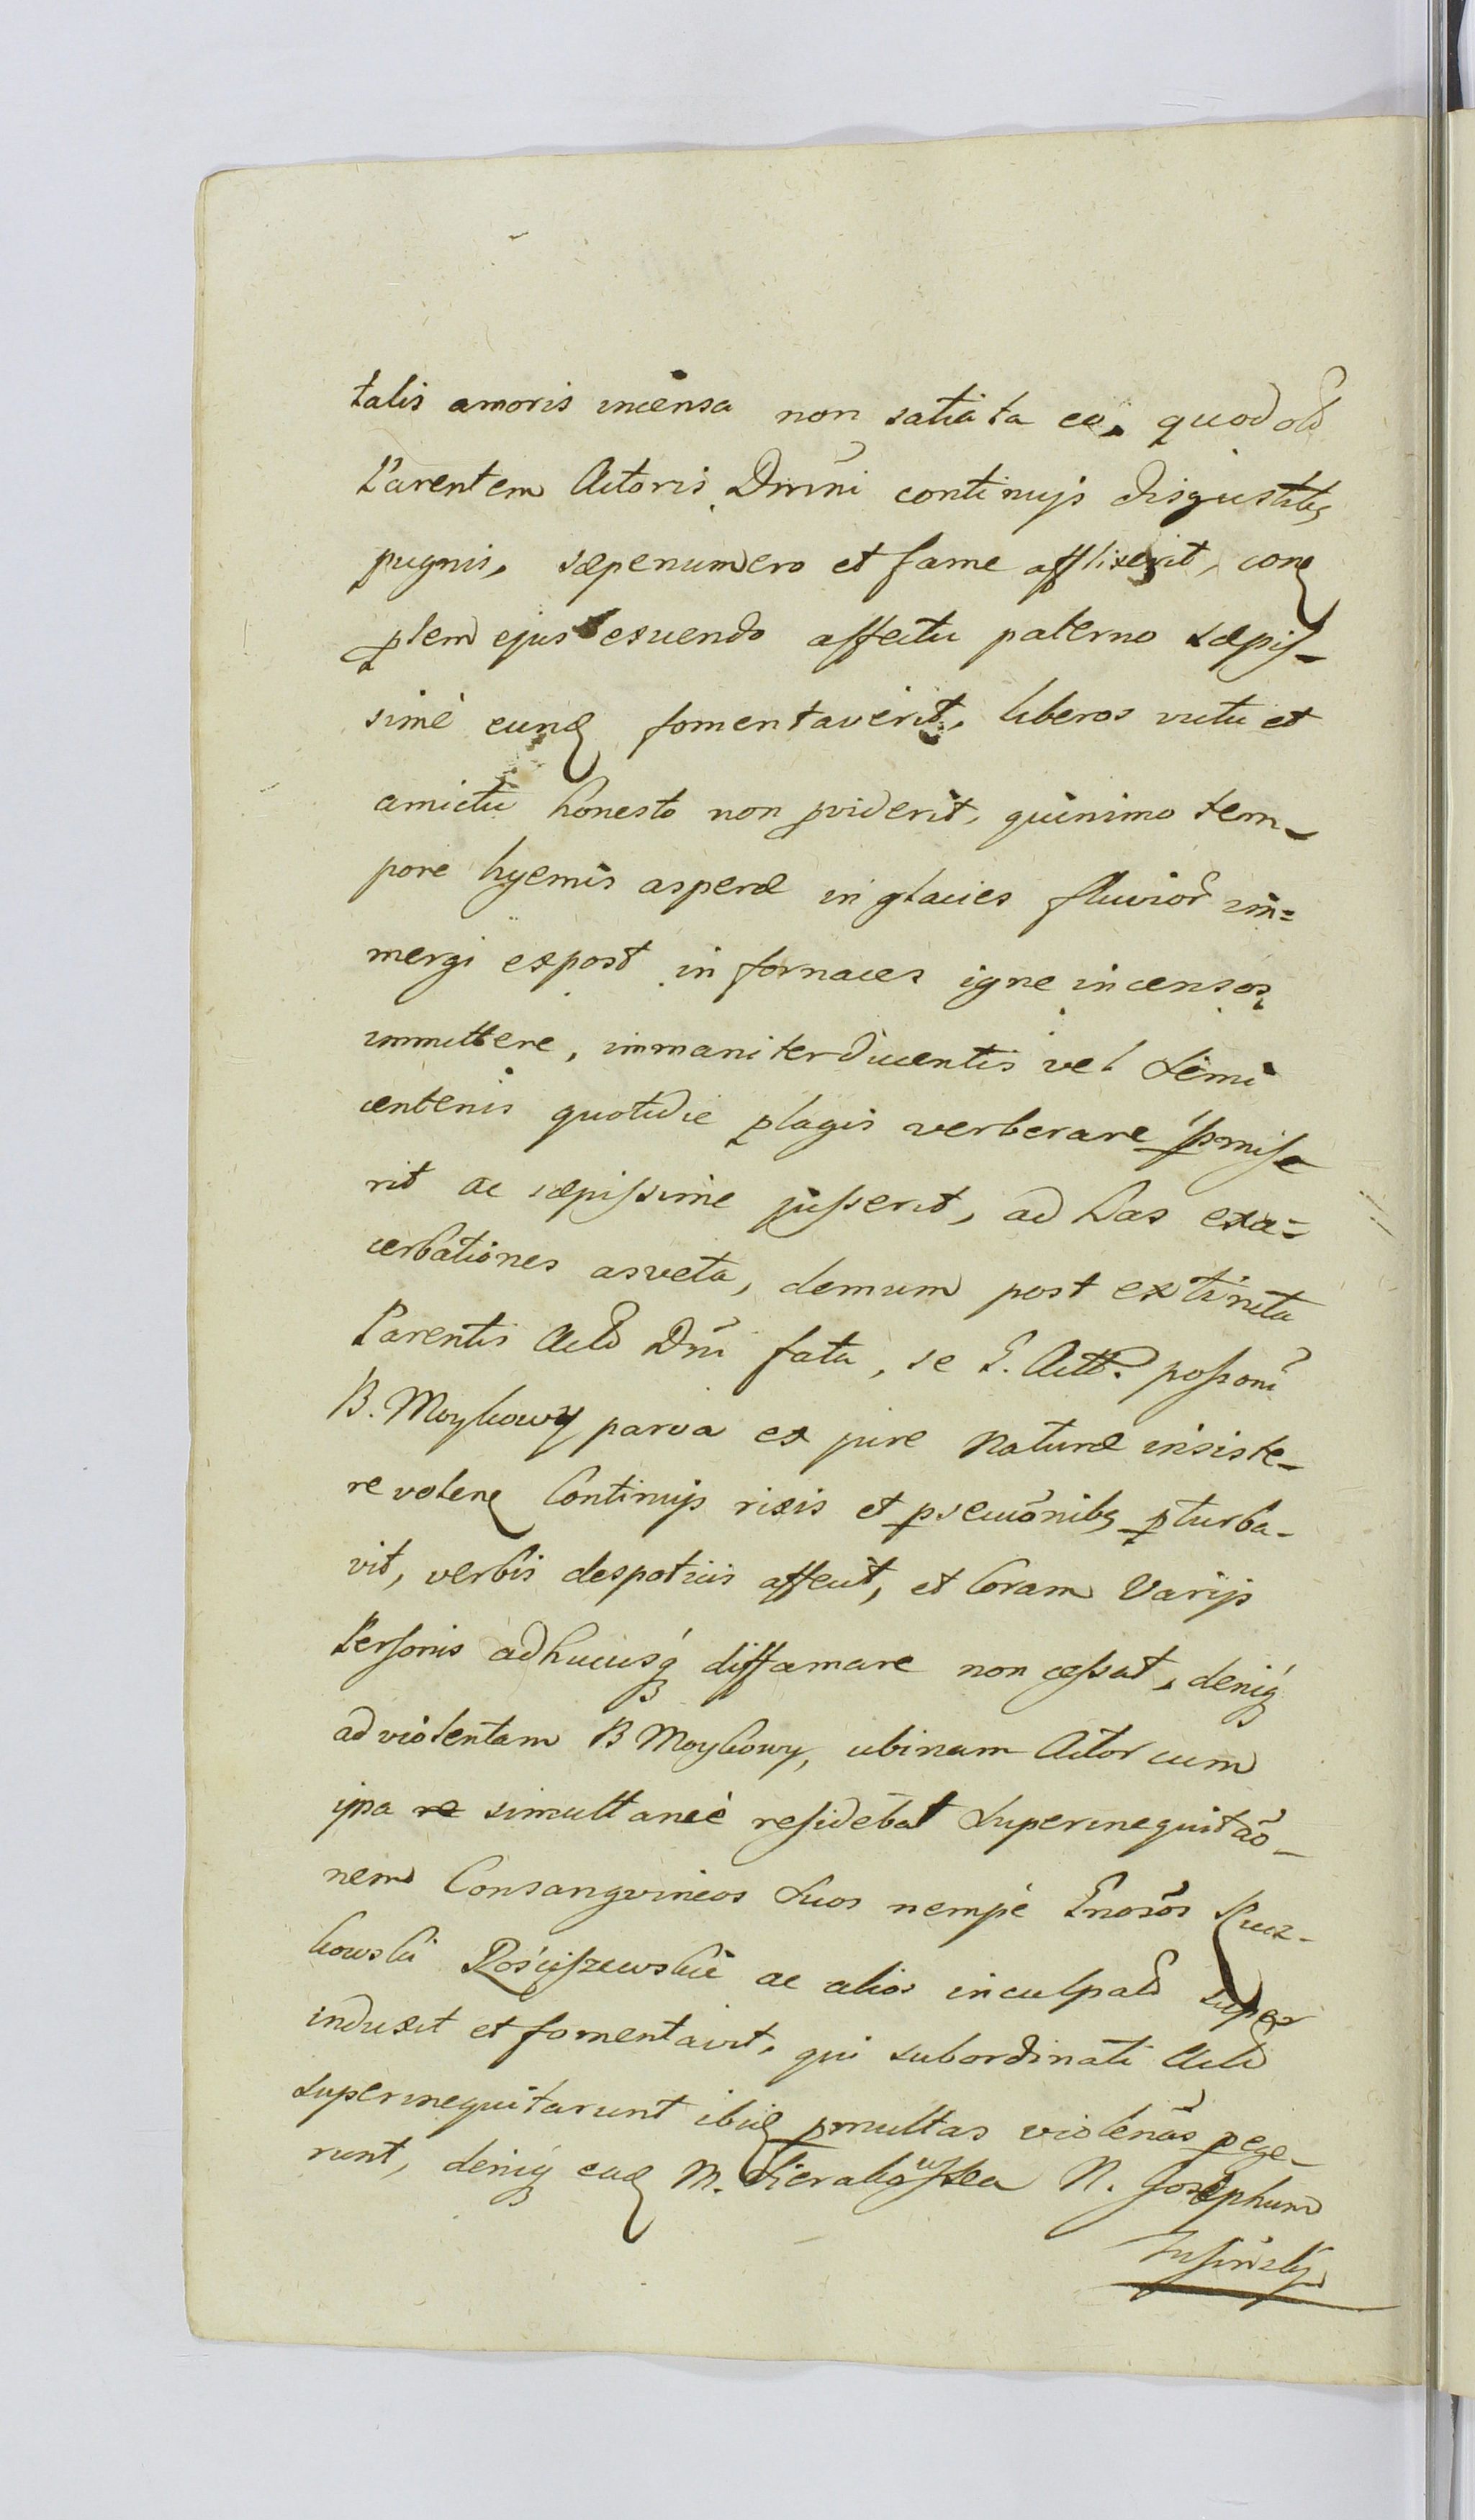 talis amoris incensa non satiata eo, quod olĩ
Parentem Actoris Dnĩni continujs disgustibꝫ
pugnis, sæpenumero et fame afflixerit, con
plem ejus exuendo affectu paterno sæpis-
simè eund fomentaverit, liberos victu et
amictu honesto non pviderit, quinimo tem-
pore hyemis asperæ in glacies fluvior im=
mergi expost in fornaces igne incensos
immittere, immaniter ducentis vel Semi
centenis quotidie plagis verberare pmise
rit ac sæpissime jusserit, ad has exa=
cerbationes asveta, demum post extincta
Parentis Actõ Dnĩ fata, se G. Actt. possonĩ
B. Moykowy parva ex jure Naturæ insiste-
re volen Continujs rixis et psecuõnibꝫ pturba-
vit, verbis despoticis affecit, et Coram Varijs
Personis adhucusq diffamare non cessat, deniq
ad violentam B Moykowy, ubinam Actor cum
ipa re simultaneè residebat Superinequitaõ-
nem Consangvineos Suos nempè Gnosõs
kowski Rościszewskie ac alios inculpatõ super
induxit et fomentavit, qui subordinati Actõ
superinequitarunt ibiq pmultas violenãs pege-
runt, deniq ead M. N. Josephum